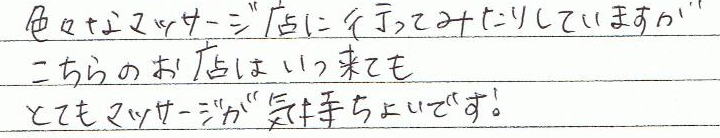 色々なマッサージ店に行ってみたりしていますが
こちらのお店はいつ来ても
とてもマッサージが気持ちよいです!